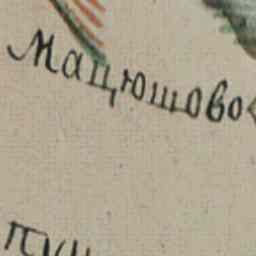 Мацюшово